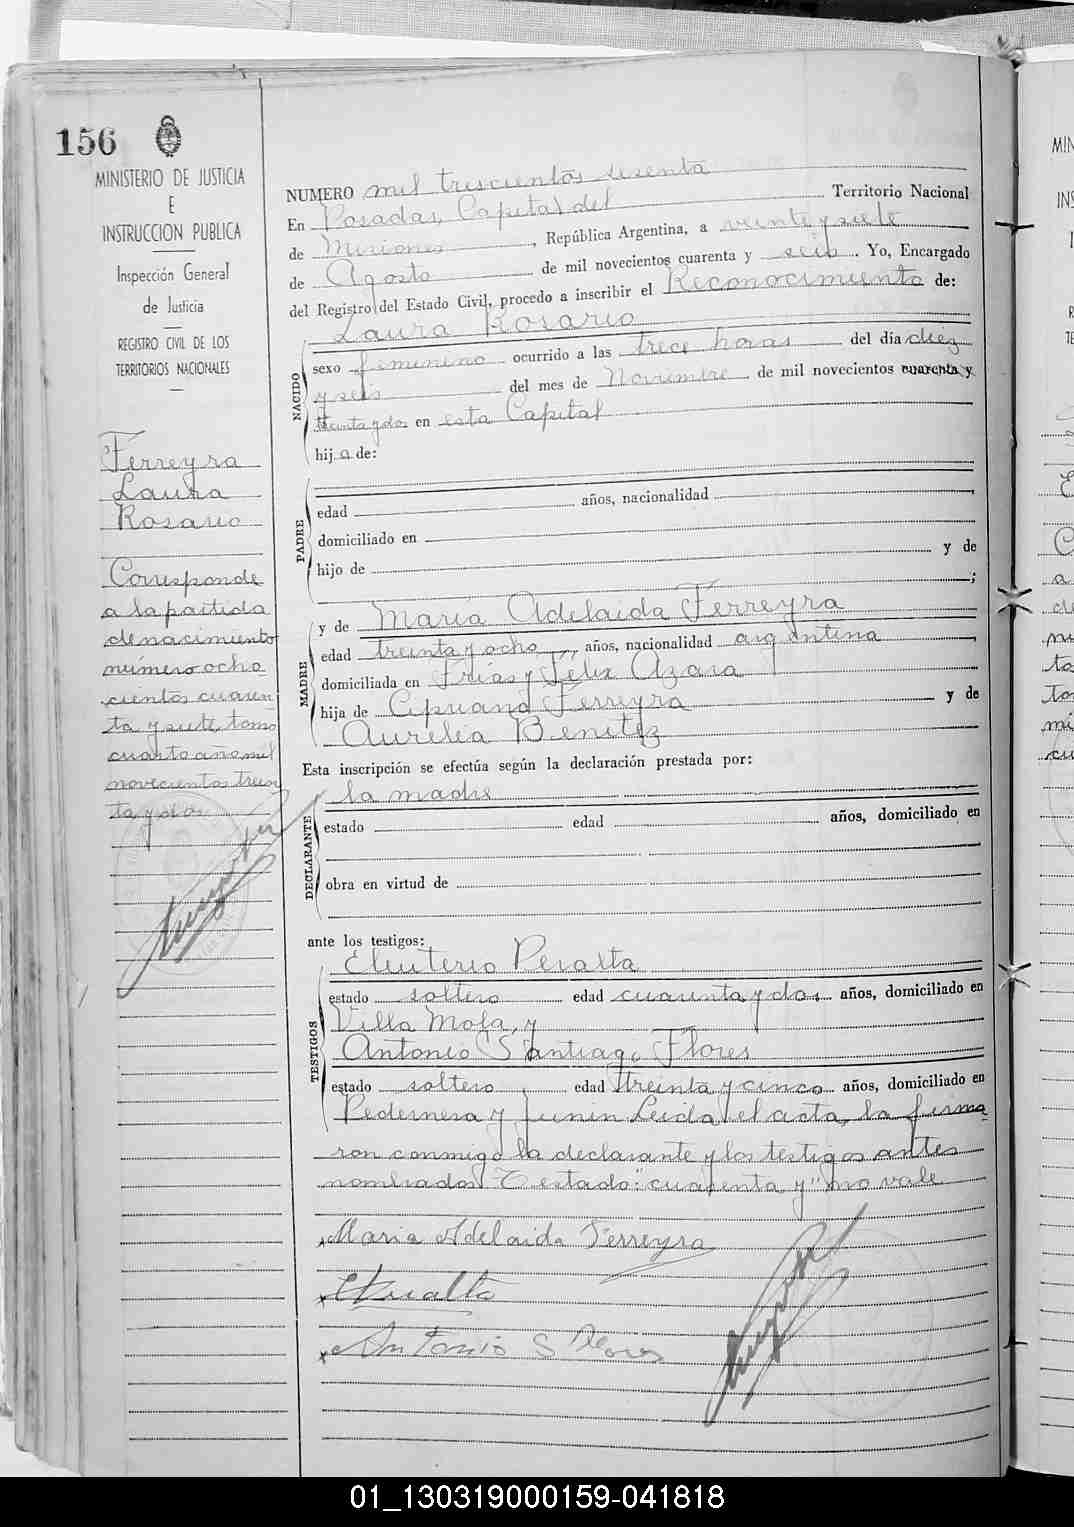 156
MINISTERIO DE JUSTICIA
E
INSTRUCCION PUBLICA
Inspección General
de Justicia
REGISTRO CIVIL DE LOS
TERRITORIOS NACIONALES
Ferreyra
Laura
Rosario
Corresponde
a la partida
de nacimiento
número ocho
cientos cuaren
ta y siete, tomo
cuarto año mil
novecientos trein
ta y dos.
NUMERO mil trescientos sesenta
En Posadas, Capital del Territorio Nacional
de Misiones, República Argentina, a veinte y siete
de Agosto de mil novecientos cuarenta y seis. Yo, Encargado
del Registro del Estado Civil, procedo a inscribir el Reconocimiento de:
Laura Rosario
NACIDO
sexo femenino ocurrido a las trece horas del día diez
y seis del mes de Noviembre de mil novecientos cuarenta y
treinta y dos en esta Capital
hija de:
PADRE
edad años, nacionalidad
domiciliado en
hijo de y de
;
MADRE
y de María Adelaida Ferreyra
edad treinta y ocho años, nacionalidad argentina
domiciliada en Frías y Félix Azara
hija de Cipriano Ferreyra y de
Aurelia Benitez
Esta inscripción se efectúa según la declaración prestada por:
DECLARANTE
la madre
estado edad años, domiciliado en
obra en virtud de
ante los testigos:
TESTIGOS
Eleuterio Peralta
estado soltero edad cuarenta y dos años, domiciliado en
Villa Mola, y
Antonio Santiago Flores
estado soltero edad treinta y cinco años, domiciliado en
Pedernera y Junin Leida el acta, la firma
ron conmigo la declarante y los testigos antes
nombrados Testado: "cuarenta y" no vale
Maria Adelaida Ferreyra
EPeralta
Antonio S Flores
MIN
INS
01_130319000159-041818